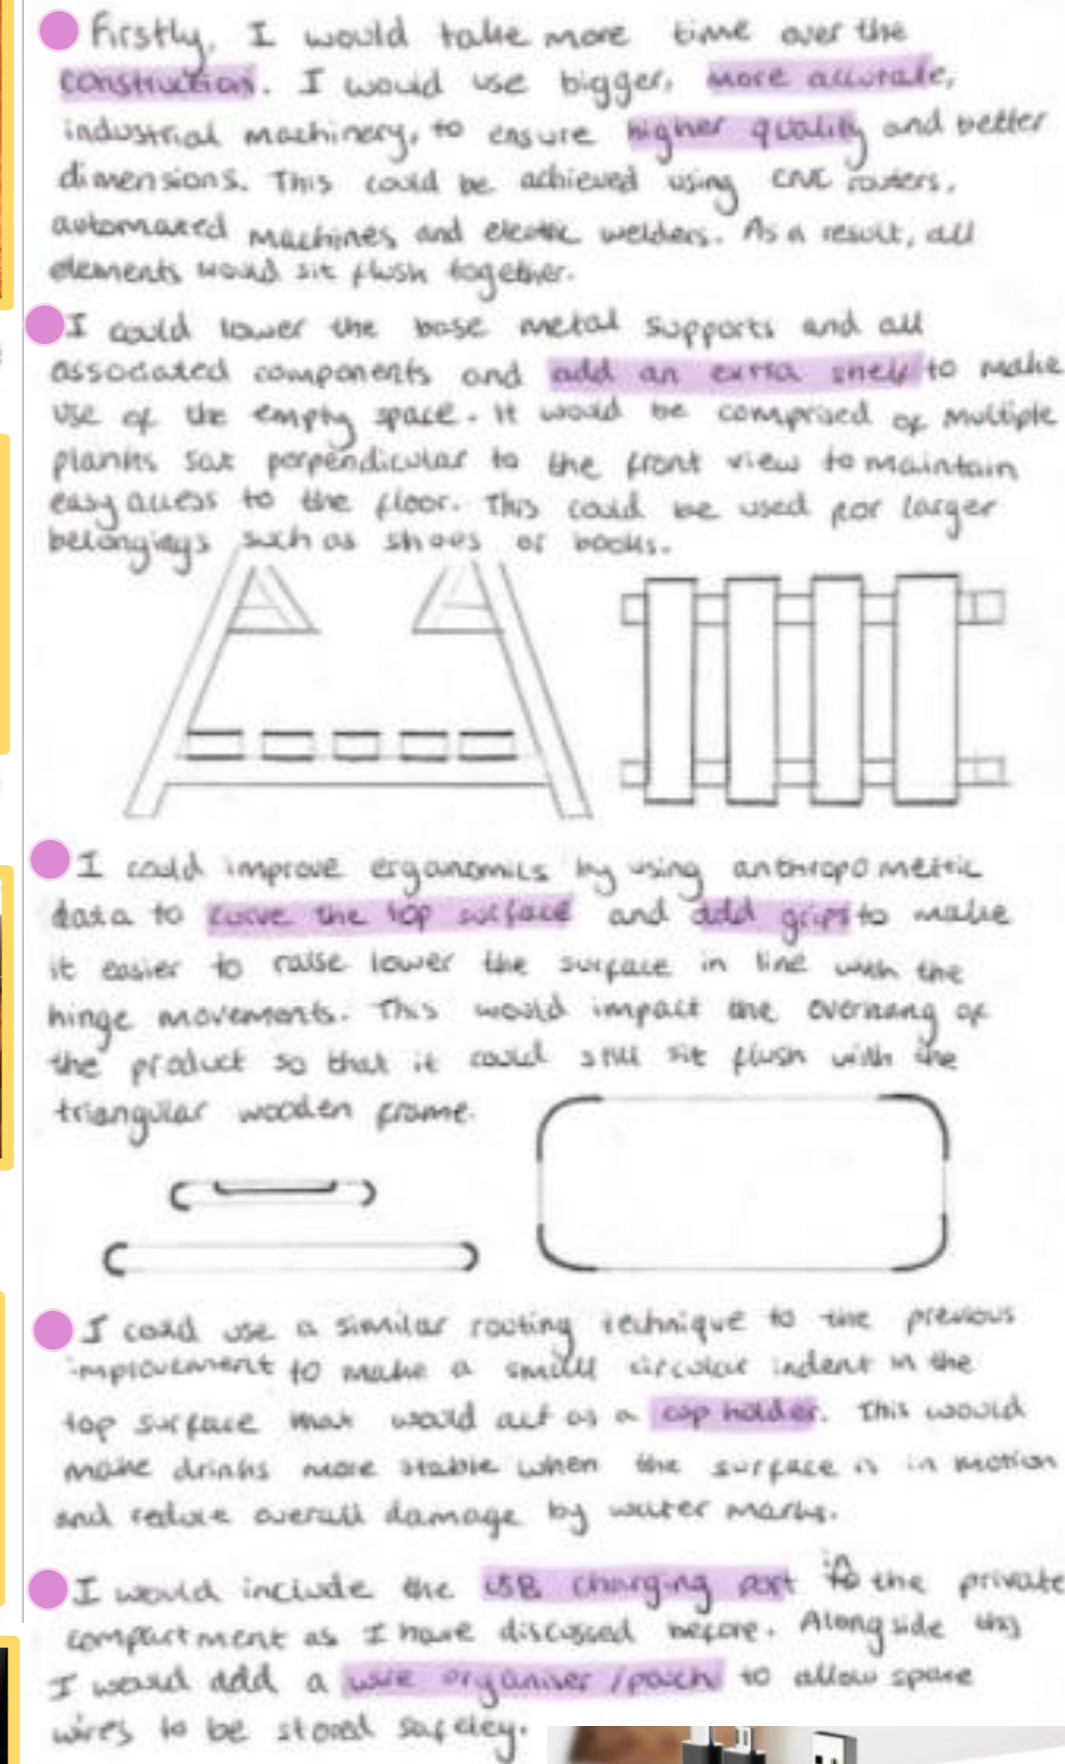 Firstly, I would take more time over the
construction. I would use bigger, more accurate,
industrial machinery, to ensure higher quality and better
dimensions. This could be achieved using CNC routers,
automated machines and electric welders. As a result, all
elements would sit flush together.
I could lower the base metal supports and all
associated components and add an extra shelf to make
use of the empty space. It would be comprised of multiple
planks sat perpendicular to the front view to maintain
easy access to the floor. This could be used for larger
belongings such as shoes or books.
I could improve erganomics by using anthropometric
data to curve the top surface and add grips to make
it easier to raise lower the surface in line with the
hinge movements. This would impact the overhang of
the product so that it could still sit flush with the
triangular wooden frame.
I could use a similar routing technique to the previous
improvement to make a small circular indent in the
top surface that would act as a cup holder. This would
make drinks more stable when the surface is in motion
and reduce overall damage by water marks.
I would include the USB charging port in the private
compartment as I have discussed before. Alongside this
I would add a wire organiser/pouch to allow spare
wires to be stored safeley.